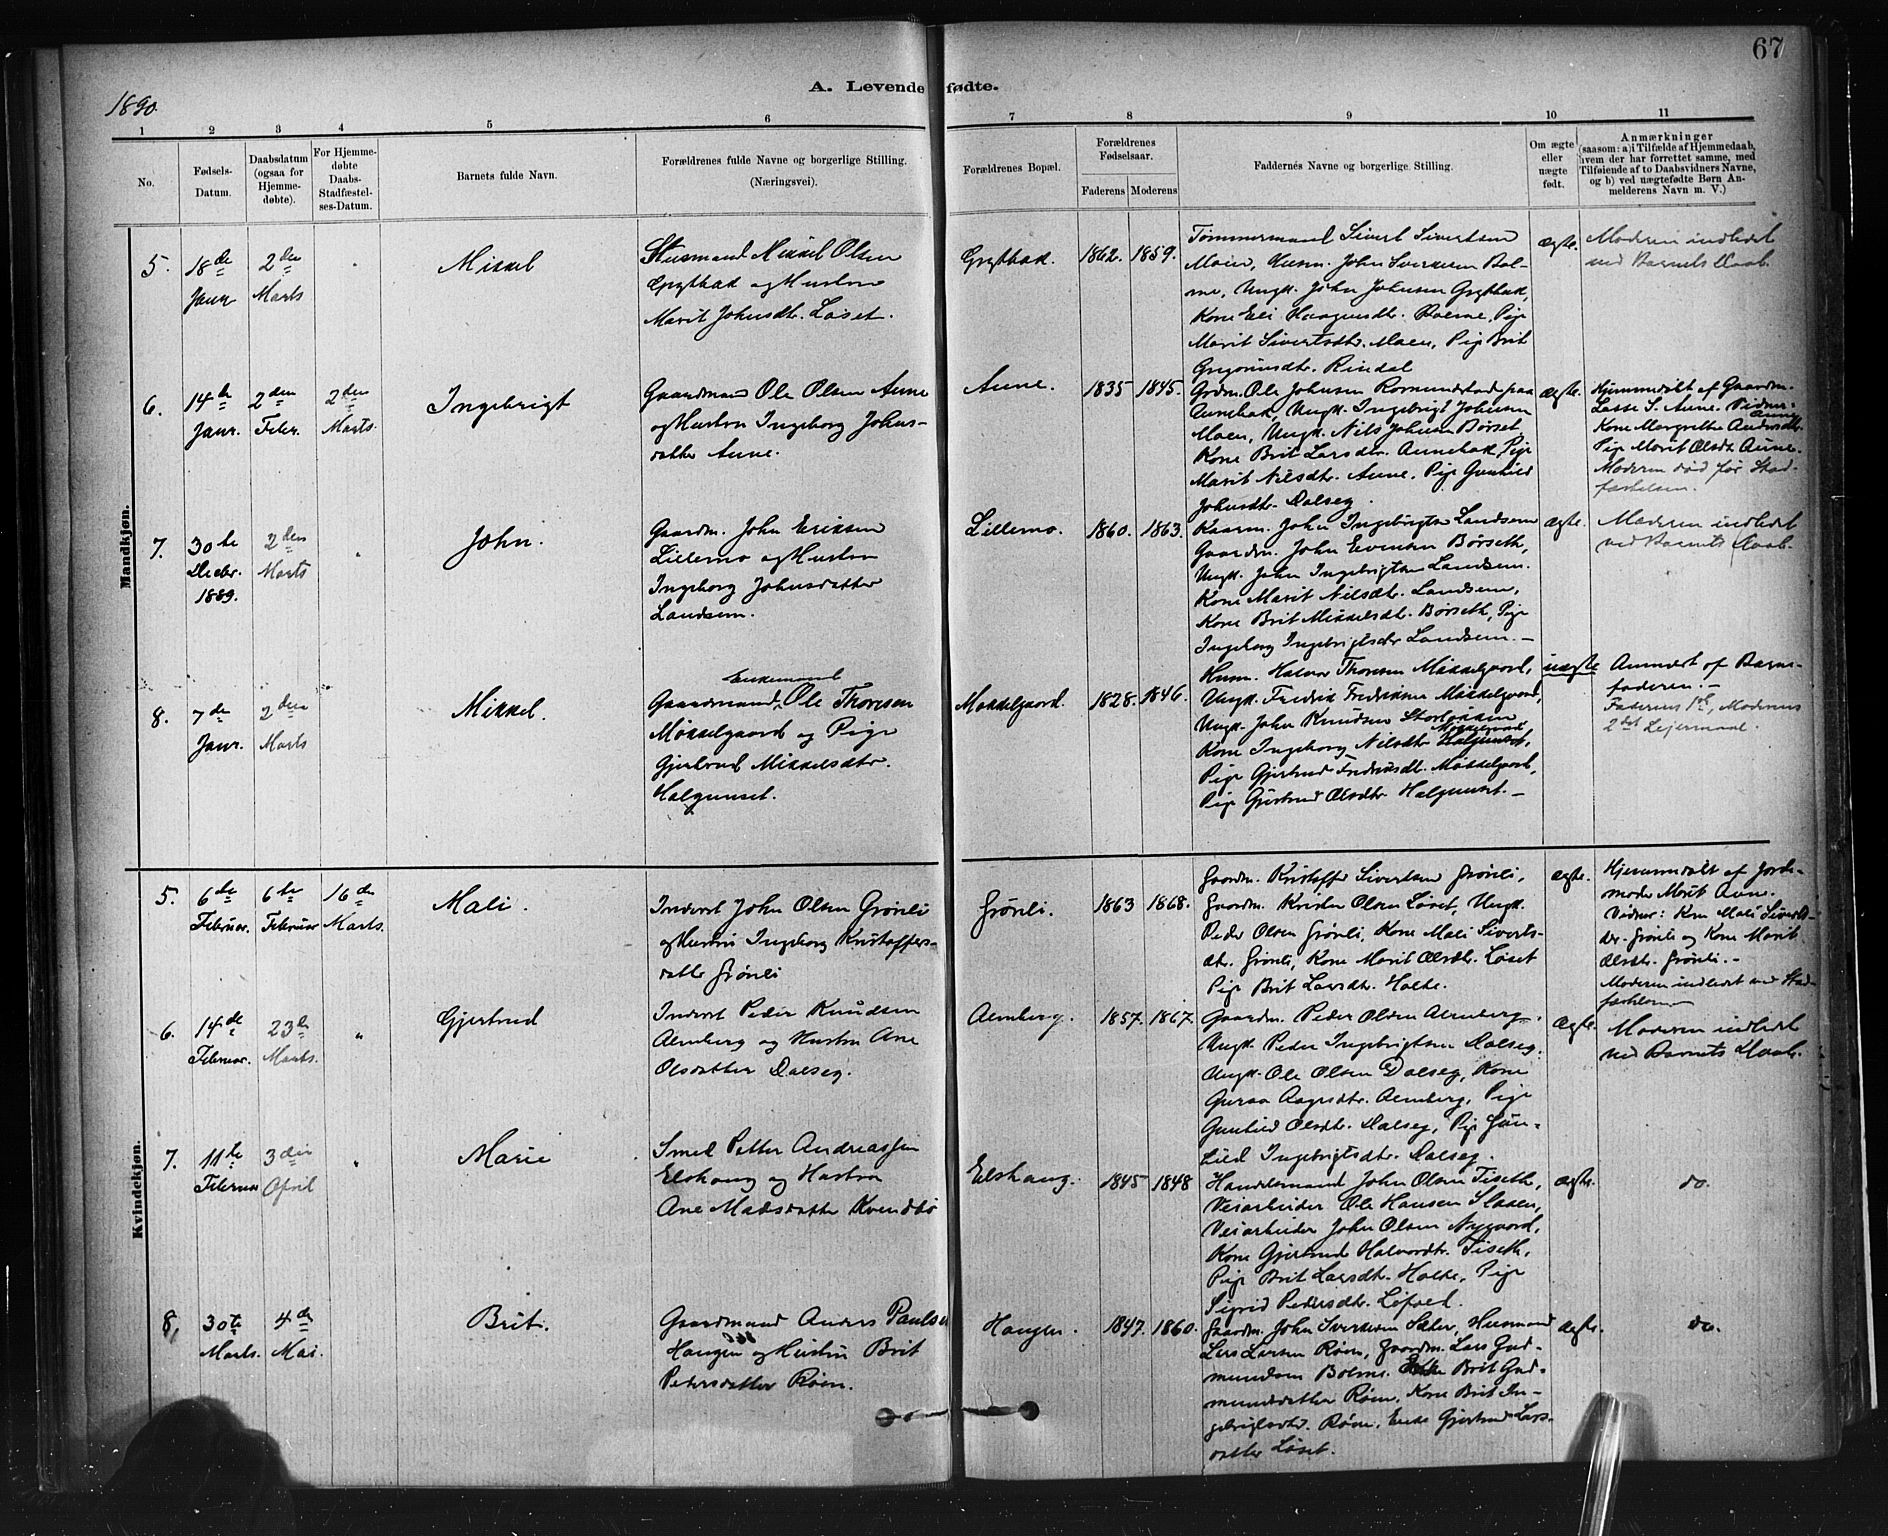 67
1890.
A. Levende fødte.
1 2 3 4 5 6 7 8 9 10 11
No.
Fødsels-
Datum.
Daabsdatum
(ogsaa for
Hjemme-
døbte).
For Hjemme-
døbte
Daabs-
Stadfæstel-
ses-Datum.
Barnets fulde Navn.
Forældrenes fulde Navne og borgerlige Stilling.
(Næringsvei).
Forældrenes Bopæl.
Forældrenes
Fødselsaar.
Faderens Moderens
Faddernes Navne og borgerlige Stilling.
Om ægte
eller
uægte
født.
Anmærkninger
(saasom: a) i Tilfælde af Hjemmedaab,
hvem der har forrettet samme, med
Tilføiende af to Daabsvidners Navne,
og b) ved uægtefødte Børn An-
melderens Navn m. V.)
Mandkjøn.
5.
18de
Janr
2den
Marts
Mikkel
Husmand Mikkel Olsen
Grytbak og Hustru
Marit Johnsdtr. Løset.
Grytbak.
1862. 1859.
Tømmermand Sivert Sivertsen
Moen, Husm. John Sverkesen Bol-
me, Ungk. John Johnsen Grytbak,
Kone Eli Haagensdtr. Bolme, Pige
Marit Sivertsdtr. Moen, Pige Brit
Rindal
ægte.
Moderen indledet
ved Barnets Daab.
6.
14de
Janr.
2den
Febr.
2den
Marts.
Ingebrigt
Gaardmand Ole Olsen Aune
og Hustru Ingeborg Johns-
datter Aune.
Aune.
1835 1845.
Grdm. Ole Johnsen Romundstad paa
Aunebak, Ungk. Ingebrigt Johnsen
Moen, Ungk. Nils Johnsen Børset
Kone Brit Larsdtr. Aunebak, Pige
Marit Nilsdtr. Aune, Pige Gunhild
Johnsdtr. Dalseg.
ægte.
Hjemmedøbt af Gaardm.
Lasse S. Aune. Vidner:
Kone Margrethe Andersdtr. Aune
Pige Marit Olsdt Aune.
Moderen død før Stad-
fæstelsen.
7.
30te
Decbr.
1889.
2den
Marts
John.
Gaardm. John Eriksen
Lillemo og Hustru
Ingeborg Johnsdatter
Landsem.
Lillemo.
1860. 1863.
John Ingebrigtsen Landsem
Gaardm. John Evensen Børseth,
Ungk. John Ingebrigtsen Landsem.
Kone Marit Nilsdtr. Landsem,
Kone Brit Mikkelsdtr. Børseth, Pige
Ingeborg Ingebrigtsdtr Landsem. –
ægte.
Moderen indledet
ved Barnets Daab.
8.
7de
Janr.
2den
Marts
Mikkel.
Enkemand
Gaardmand, Ole Thoresen
Møkkelgaard og Pige
Gjertrud Mikkelsdtr.
Halgunset.
Møkkelgaard.
1828. 1846.
Husm. Halvor Thoresen Møkkelgaard,
Ungk. Fredrik Fredriksen Møkkelgaard,
Ungk. John Knudsen Storløkken
Møkkelgaard
Kone Ingeborg Nilsdtr Halgunset,
Pige Gjertrud Fredriksdt. Møkkelgaard,
Pige Gjertrud Olsdtr Halgunset. –
uægte
Anmeldt af Barne-
faderen. –
Faderens 1ste, Moderens
2det Leiermaal.
Kvindekjøn.
5.
6te
Februar.
6te
Februar
16de
Marts.
Mali.
Inderst John Olsen Grønli
og Hustru Ingeborg Kristoffers-
datter Grønli
Grønli.
1863 1868.
Gaardm. Kristoffer Sivertsen Grønli,
Gaardm. Olsen Løset, Ungk.
Peder Olsen Grønli, Kone Mali Siverts-
dtr. Grønli, Kone Marit Olsdtr. Løset
Pige Brit Larsdtr. Holte.
ægte.
Hjemmedøbt af Jorde-
moder Marit Aune.
Vidner: Kone Mali Siverts-
dtr. Grønli og Kone Marit
Olsdtr. Grønli. –
Moderen indledet ved Stad-
fæstelsen
6.
14de
Februar.
23de
Marts.
"
Gjertrud
Inderst Peder Knudsen
Almberg og Hustru Ane
Olsdatter Dalseg.
Almberg.
1857. 1867.
Gaardm. Peder Olsen Almberg.
Ungk. Peder Ingebrigtsen Dalseg.
Ungk. Ole Olsen Dalseg, Kone
Guraa Aagesdtr. Almberg, Pige
Gunhild Olsdtr. Dalseg, Pige Gun-
hild Ingebrigtsdtr. Dalseg.
ægte.
Moderen indledet
ved Barnets Daab.
7.
11te
Februar
3die
April
"
Marie
Smed Petter Andreassen
Elshaug og Hustru
Ane Madsdatter Kvendbø
Elshaug.
1845 1848
Handelsmand John Olsen Fiseth,
Veiarbeider Ole Hansen Slaaen,
Veiarbeider John Olsen Nygaard,
Kone Gjertrud Halvordtr. Fiseth,
Pige Brit Larsdtr. Holte, Pige
Sigrid Pedersdtr. Løfald.
ægte.
do.
8.
30te
Marts.
4de
Mai.
Brit.
Gaardmand Anders Paulsen
Haugen og Hustru Brit
Pedersdatter Røen.
Haugen.
1847. 1860.
Gaardm. John Sverkesen Sæter, Husmand
Lars Larsen Røen, Gaardm. Lars Gud-
mundsen Bolme. Brit Gud-
mundsdatter Røen. Kone Brit In-
gebrigtsdtr. Røen, Enke Gjertrud Lars-
datter Løset.
ægte.
do.